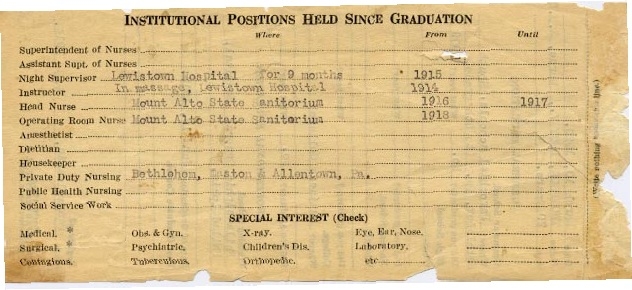 INSTITUTIONAL POSITIONS HELD SINCE GRADUATION
Where From Until
Superintendent of Nurses
Assistant Supt. of Nurses
Night Supervisor Lewistown Hospital for 9 months 1915
Instructor In massage, Lewistown Hospital 1914
Head Nurse Mount Alto State Sanitorium 1916 1917
Operating Room Nurse Mount Alto State Sanitorium 1918
Anæsthetist
Dietitian
Housekeeper
Private Duty Nursing Bethlehem, Easton & Allentown, Pa.
Public Health Nursing
Social Service Work
(Write nothing line.)
SPECIAL INTEREST (Check)
Medical. * Obs. & Gyn. X-ray. Eye, Ear, Nose.
Surgical. * Psychiatric. Children's Dis. Laboratory.
Contagious. Tuberculous. Orthopedic. etc